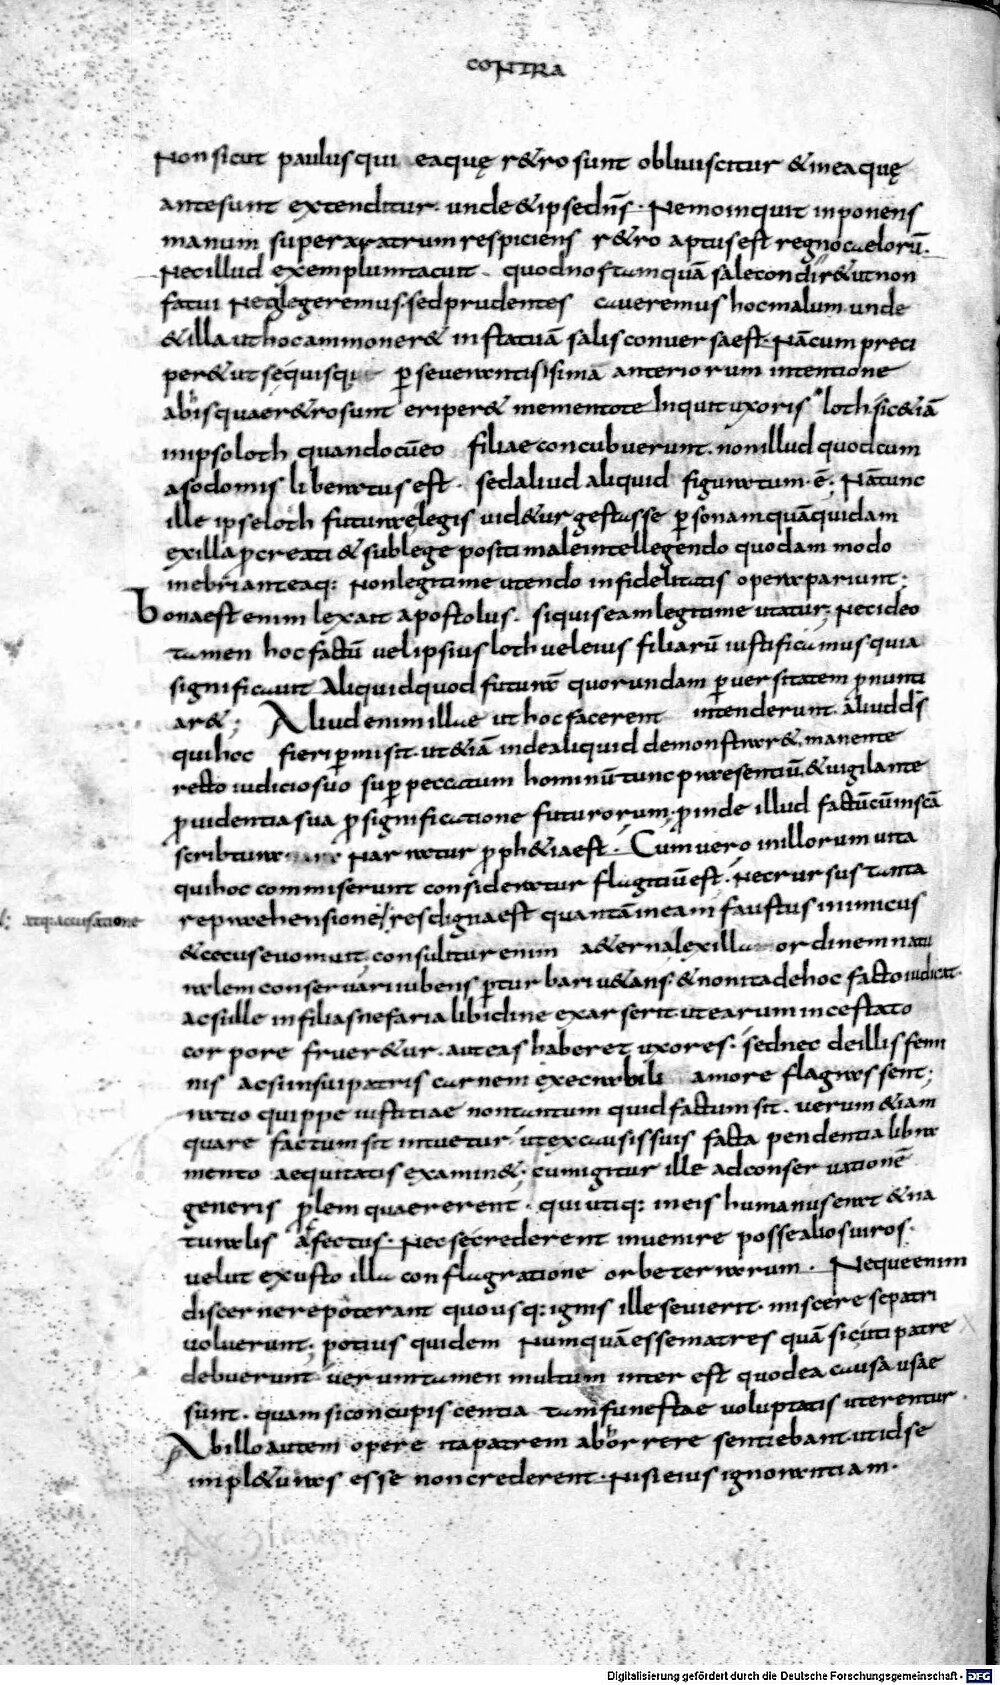 CONTRA
Non sicut paulus qui ea quę r&ro sunt obliuiscitur & in ea quę
ante sunt extenditur. unde & ipse dn̄s. Nemo inquit inponens
manum super aratrum respiciens r&ro aptus est regno caelorū.
Nec illud exemplum tacuit. quo d nos tamquā sale condir& ut non
fatui neglegeremus. sed prudentes caueremus hoc malum. unde
& illa ut hoc ammoner& in statuā salis conuersa est. Nā cum preci
per& ut se quisque p̄ seuerentissima anteriorum intentione
ab his quaer&ro sunt eriper& mementote inquit uxoris loth. sic & iā
in ipso loth quando cū eo filiae concubuerunt. non illud quod cum
a sodomis liberatus est. sed aliud aliquid figuratum .ē; Nā tunc
ille ipse loth futurae legis uid&ur gestasse p̄sonam quā quidam
ex illa p̄creati & sub lege positi male intellegendo quodam modo
inebriant eaq: non legitime utendo infidelitatis opera pariunt;
Bona est enim lex ait apostolus. si quis ea m legitime utatur; Nec ideo
tamen hoc factū uel ipsius loth uel eius filiarū iustificamus quia
significauit aliquid quod futurā quorundam p̄uersitatem p̄nunti
ar&; Aliud enim illae ut hoc facerent intenderunt. aliud d̄s
qui hoc fieri p̄misit. ut &iā inde aliquid demonstrar&. manente
recto iudicio suo sup̄ peccatum hominū tunc praesentiū. & uigilante
p̄uidentia sua p̄ significatione futurorum. p̄inde illud factū cū in scā
scribtura narratur p̄ph&ia est. Cum uero in illorum uita
qui hoc commiserunt consideratur flagitiū est. Nec rursus tanta
reprehensione res digna est quantā in eam faustus inimicus
atq: accusatione
& cecus euomuit. consulitur enim a&erna lex illa ordinem natu
ralem conseruari iubens p̄turbari u&ans. & non ita de hoc facto iudicat.
ac si ille in filias nefaria libidine exarserit ut earum incestato
corpore fruer&ur. aut eas haberet uxores. sed nec de illis femi
nis ac si in sui patris carnem execrabili amore flagrassent;
ratio quippe iustitiae non tantum quid factum sit. uerum &iam
quare factum sit intuetur ut ex causis suis facta pendentia libra
mento aequitatis examin&. cum igitur ille ad conseruationē
generis p̄lem quaererent. qui utiq: in eis humanus erat & na
turalis affectus. Nec se crederent inuenire posse alios uiros.
uelut exusto illa conflagratione orbe terrarum. Neque enim
discernere poterant quo usq: ignis ille seuierit. miscere se patri
uoluerunt; potius quidem numquā esse matres quā sic uti patre
debuerunt. uerum tamen multum interest quod ea causa usae
sunt. quam si concupiscentia tam funestae uoluptatis uterentur.
Ab illo autem opere ita patrem abhorrere sentiebant. ut id se
impl&uras esse non crederent. Nisi eius ignorantiam.
Digitalisierung gefördert durch die Deutsche Forschungsgemeinschaft - DFG